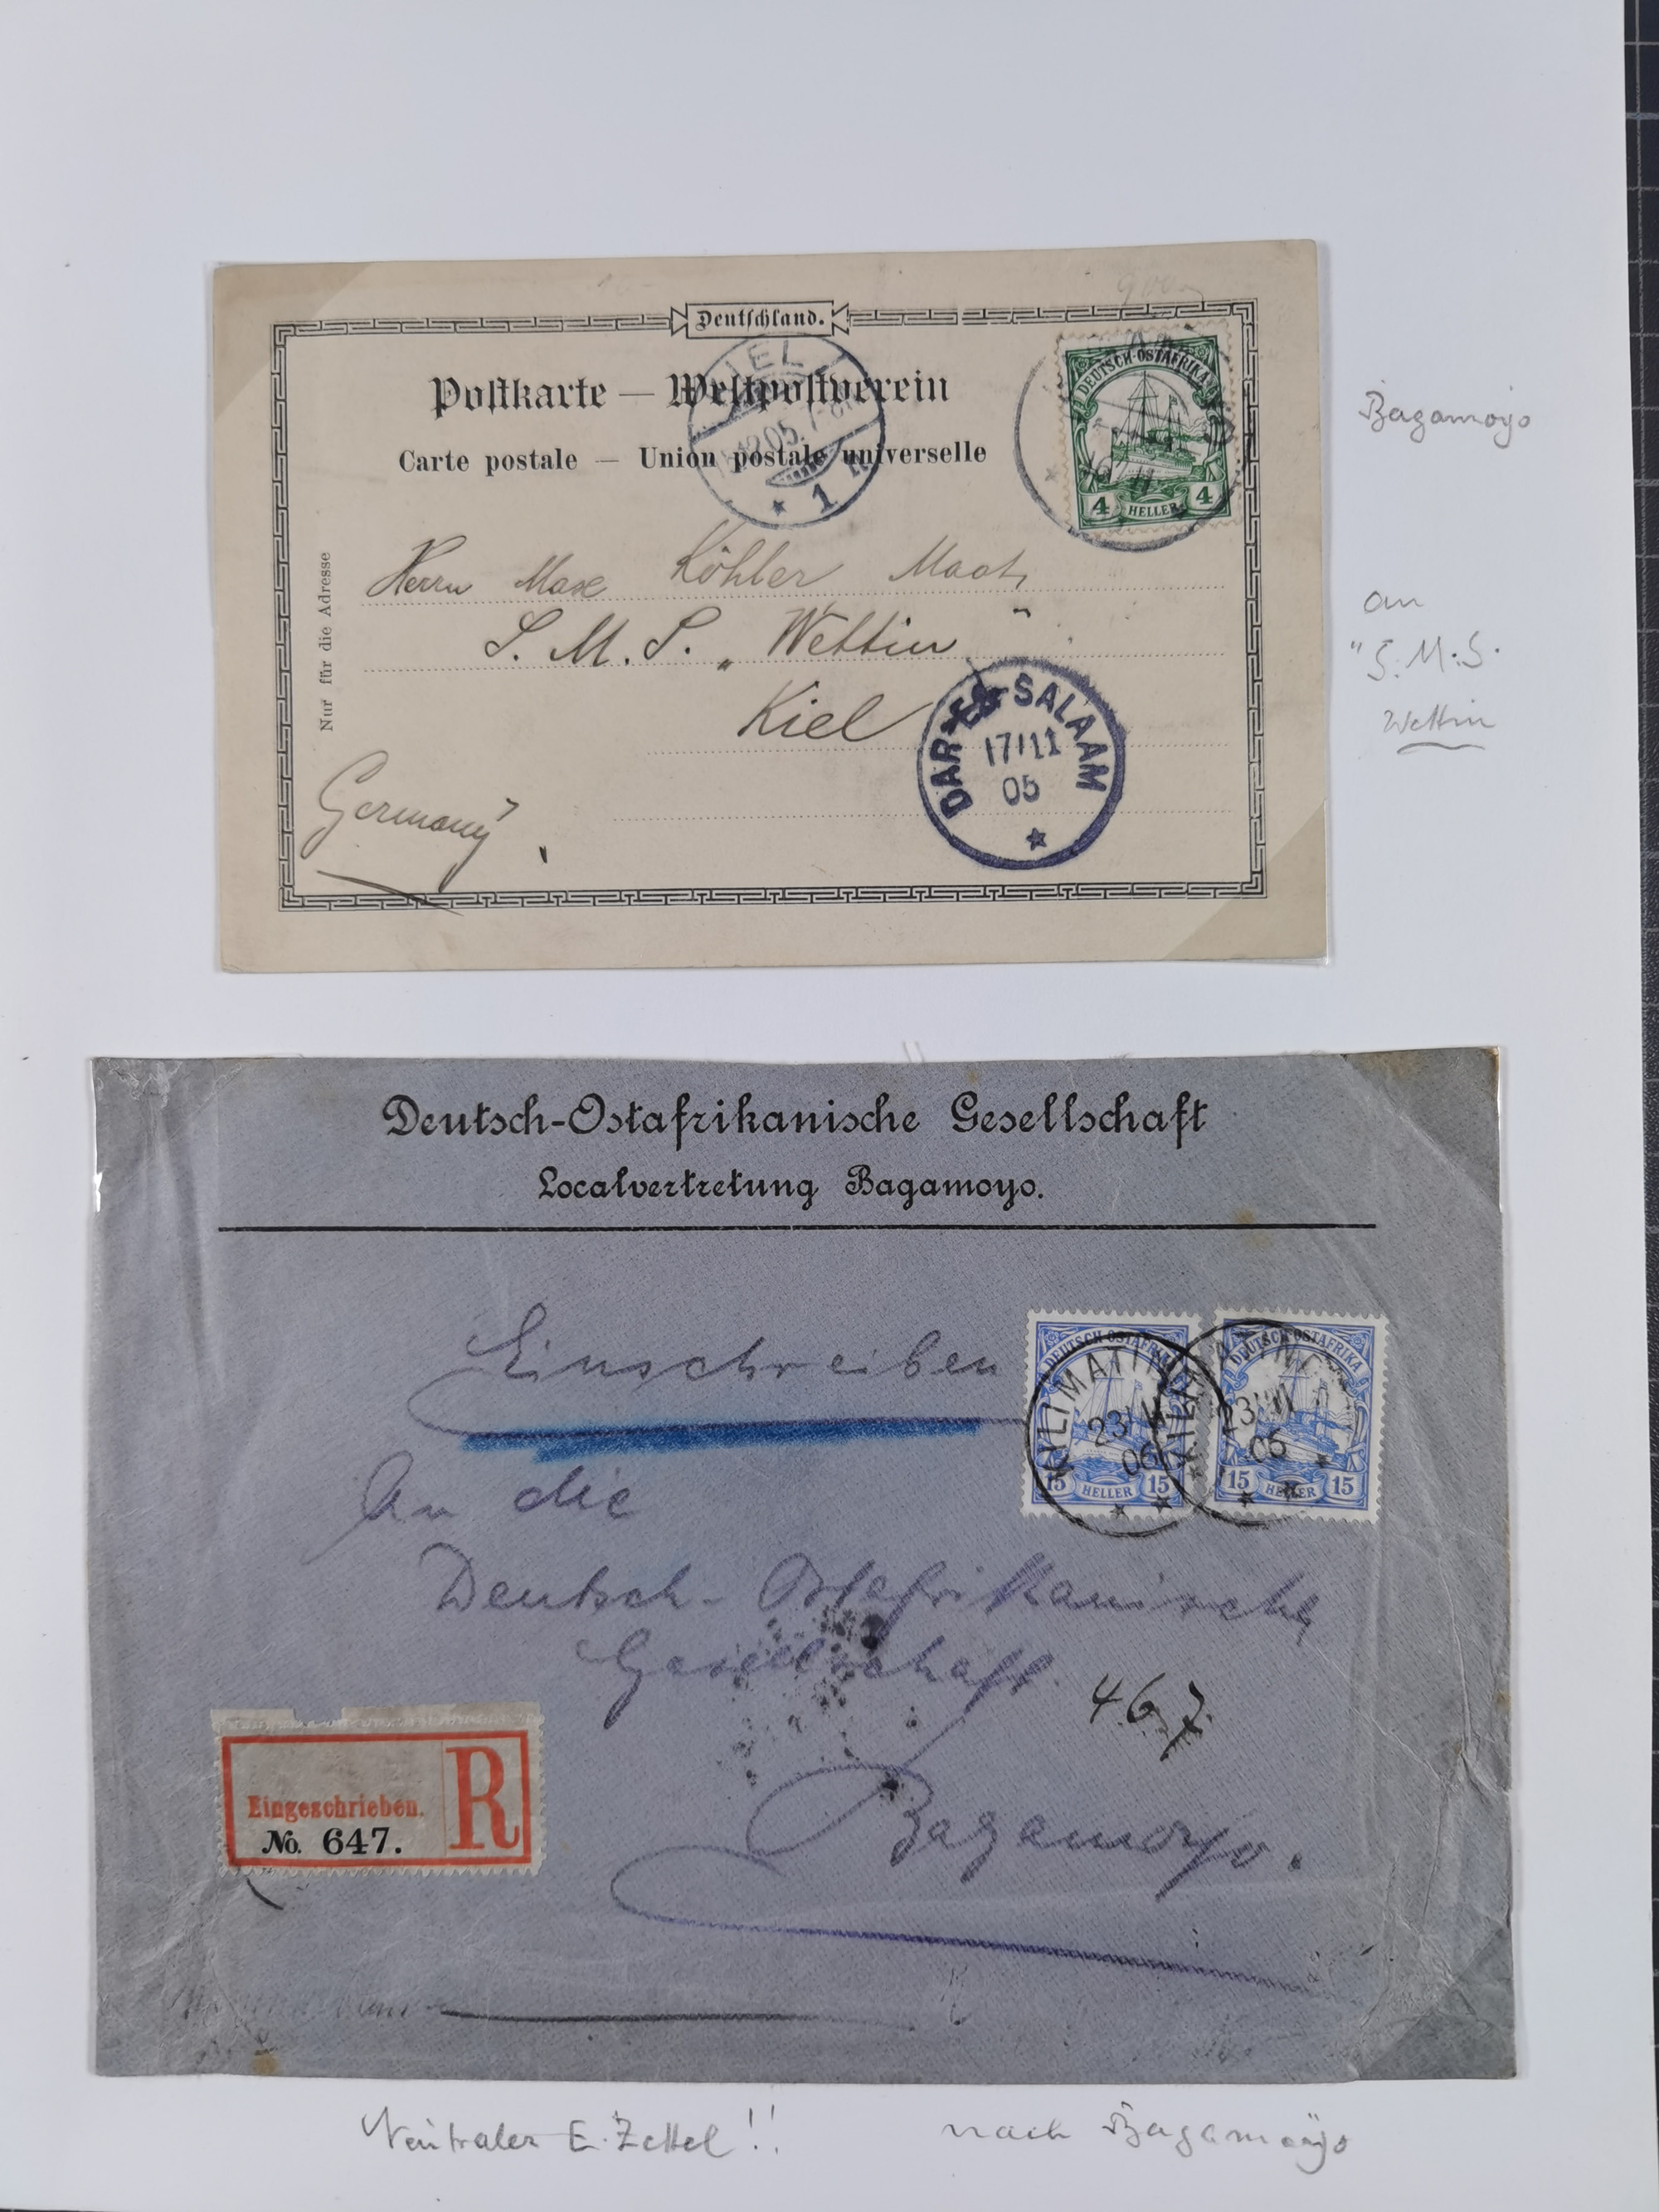 Deutschland.
Postkarte — Weltpostverein
Carte postale — Union postale universelle
Nur für die Adresse
DEUTSCH-OSTAFRIKA
4 HELLER 4
KIEL
12.05.7-8
★ 1
Herrn Max Köhler Maat
S. M. S. „Wettin"
Kiel
Germany
DAR-ES-SALAAM
17/11
05
Bagamoyo
an
"S.M.S.
Wettin
Deutsch-Ostafrikanische Gesellschaft
Localvertretung Bagamoyo.
Einschreiben
DEUTSCH-OSTAFRIKA
15 HELLER 15
KILIMATINDE
23
06
DEUTSCH-OSTAFRIKA
15 HELLER 15
KILIMATINDE
23
06
An die
Deutsch-Ostafrikanische
Gesellschaft.
467
Eingeschrieben.
No. 647.
R
Bagamoyo.
Neutraler E. Zettel!!
nach Bagamoyo